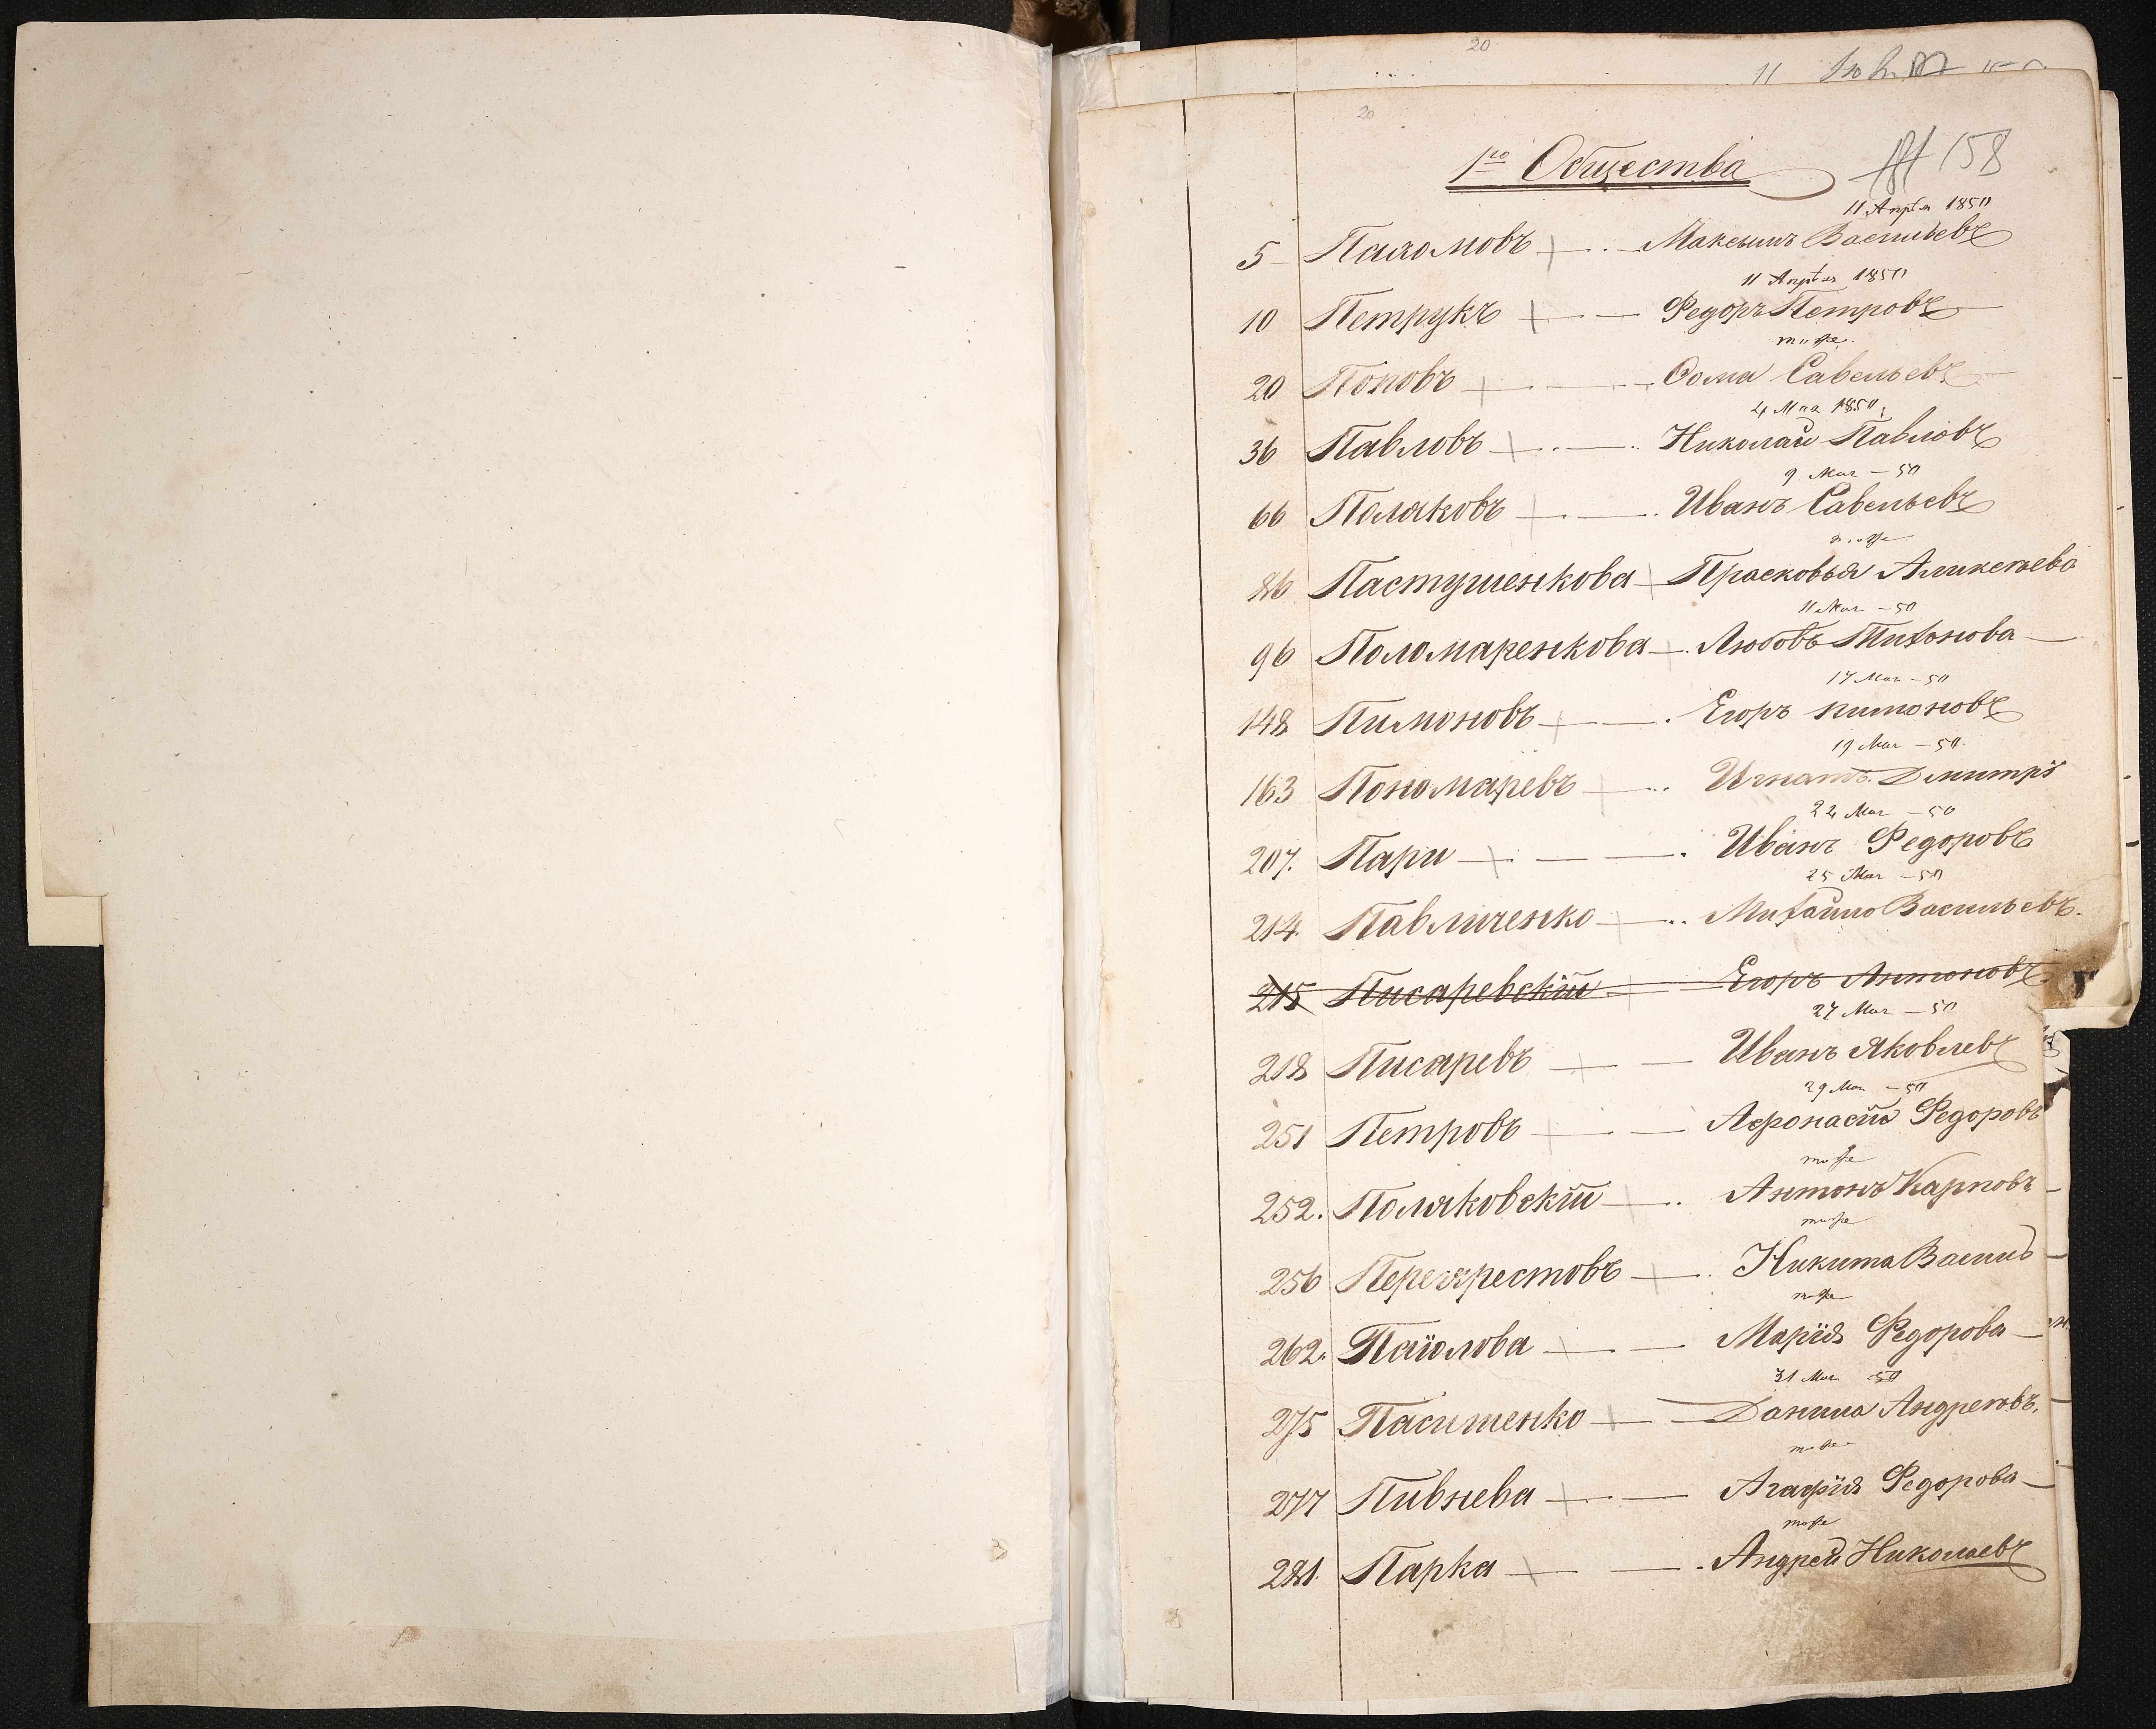 20
11
20
1го Общества
158
11 Апрѣля 1850
5 Пахомовъ Максимъ Васильевъ
11 Апрѣля 1850
10 Петрукъ Федоръ Петровъ
тоже
20 Поповъ Ѳома Савельевъ
4 Мая 1850
36 Павловъ Николай Павловъ
9 Мая — 50
66 Поляковъ Иванъ Савельевъ
тоже
86 Пастушенкова Прасковья Аликсѣева
11 Мая — 50
96 Поломаренкова Любовь Тихонова
17 Мая — 50
148 Пимоновъ Егоръ пимоновъ
19 Мая — 50
163 Пономаревъ Игнатъ Дмитрі
22 Мая — 50
207. Пари Иванъ Федоровъ
25 Мая — 50
214. Павличенко Михайло Васильевъ.
215 Писаревскій Егоръ Антоновъ
27 Мая — 50
218 Писаревъ Иванъ Яковлевъ
29 Мая — 50
251 Петровъ Афонасій Федоровъ
тоже
252. Поляковскій Антонъ Карповъ
тоже
256 Перекрестовъ Никита Василь
тоже
262. Марія Федорова
31 Мая 50
275 Паситенко Данила Андреевъ.
тоже
277 Пивнева Агафія Федорова
тоже
281. Парка Андрей Николаевъ